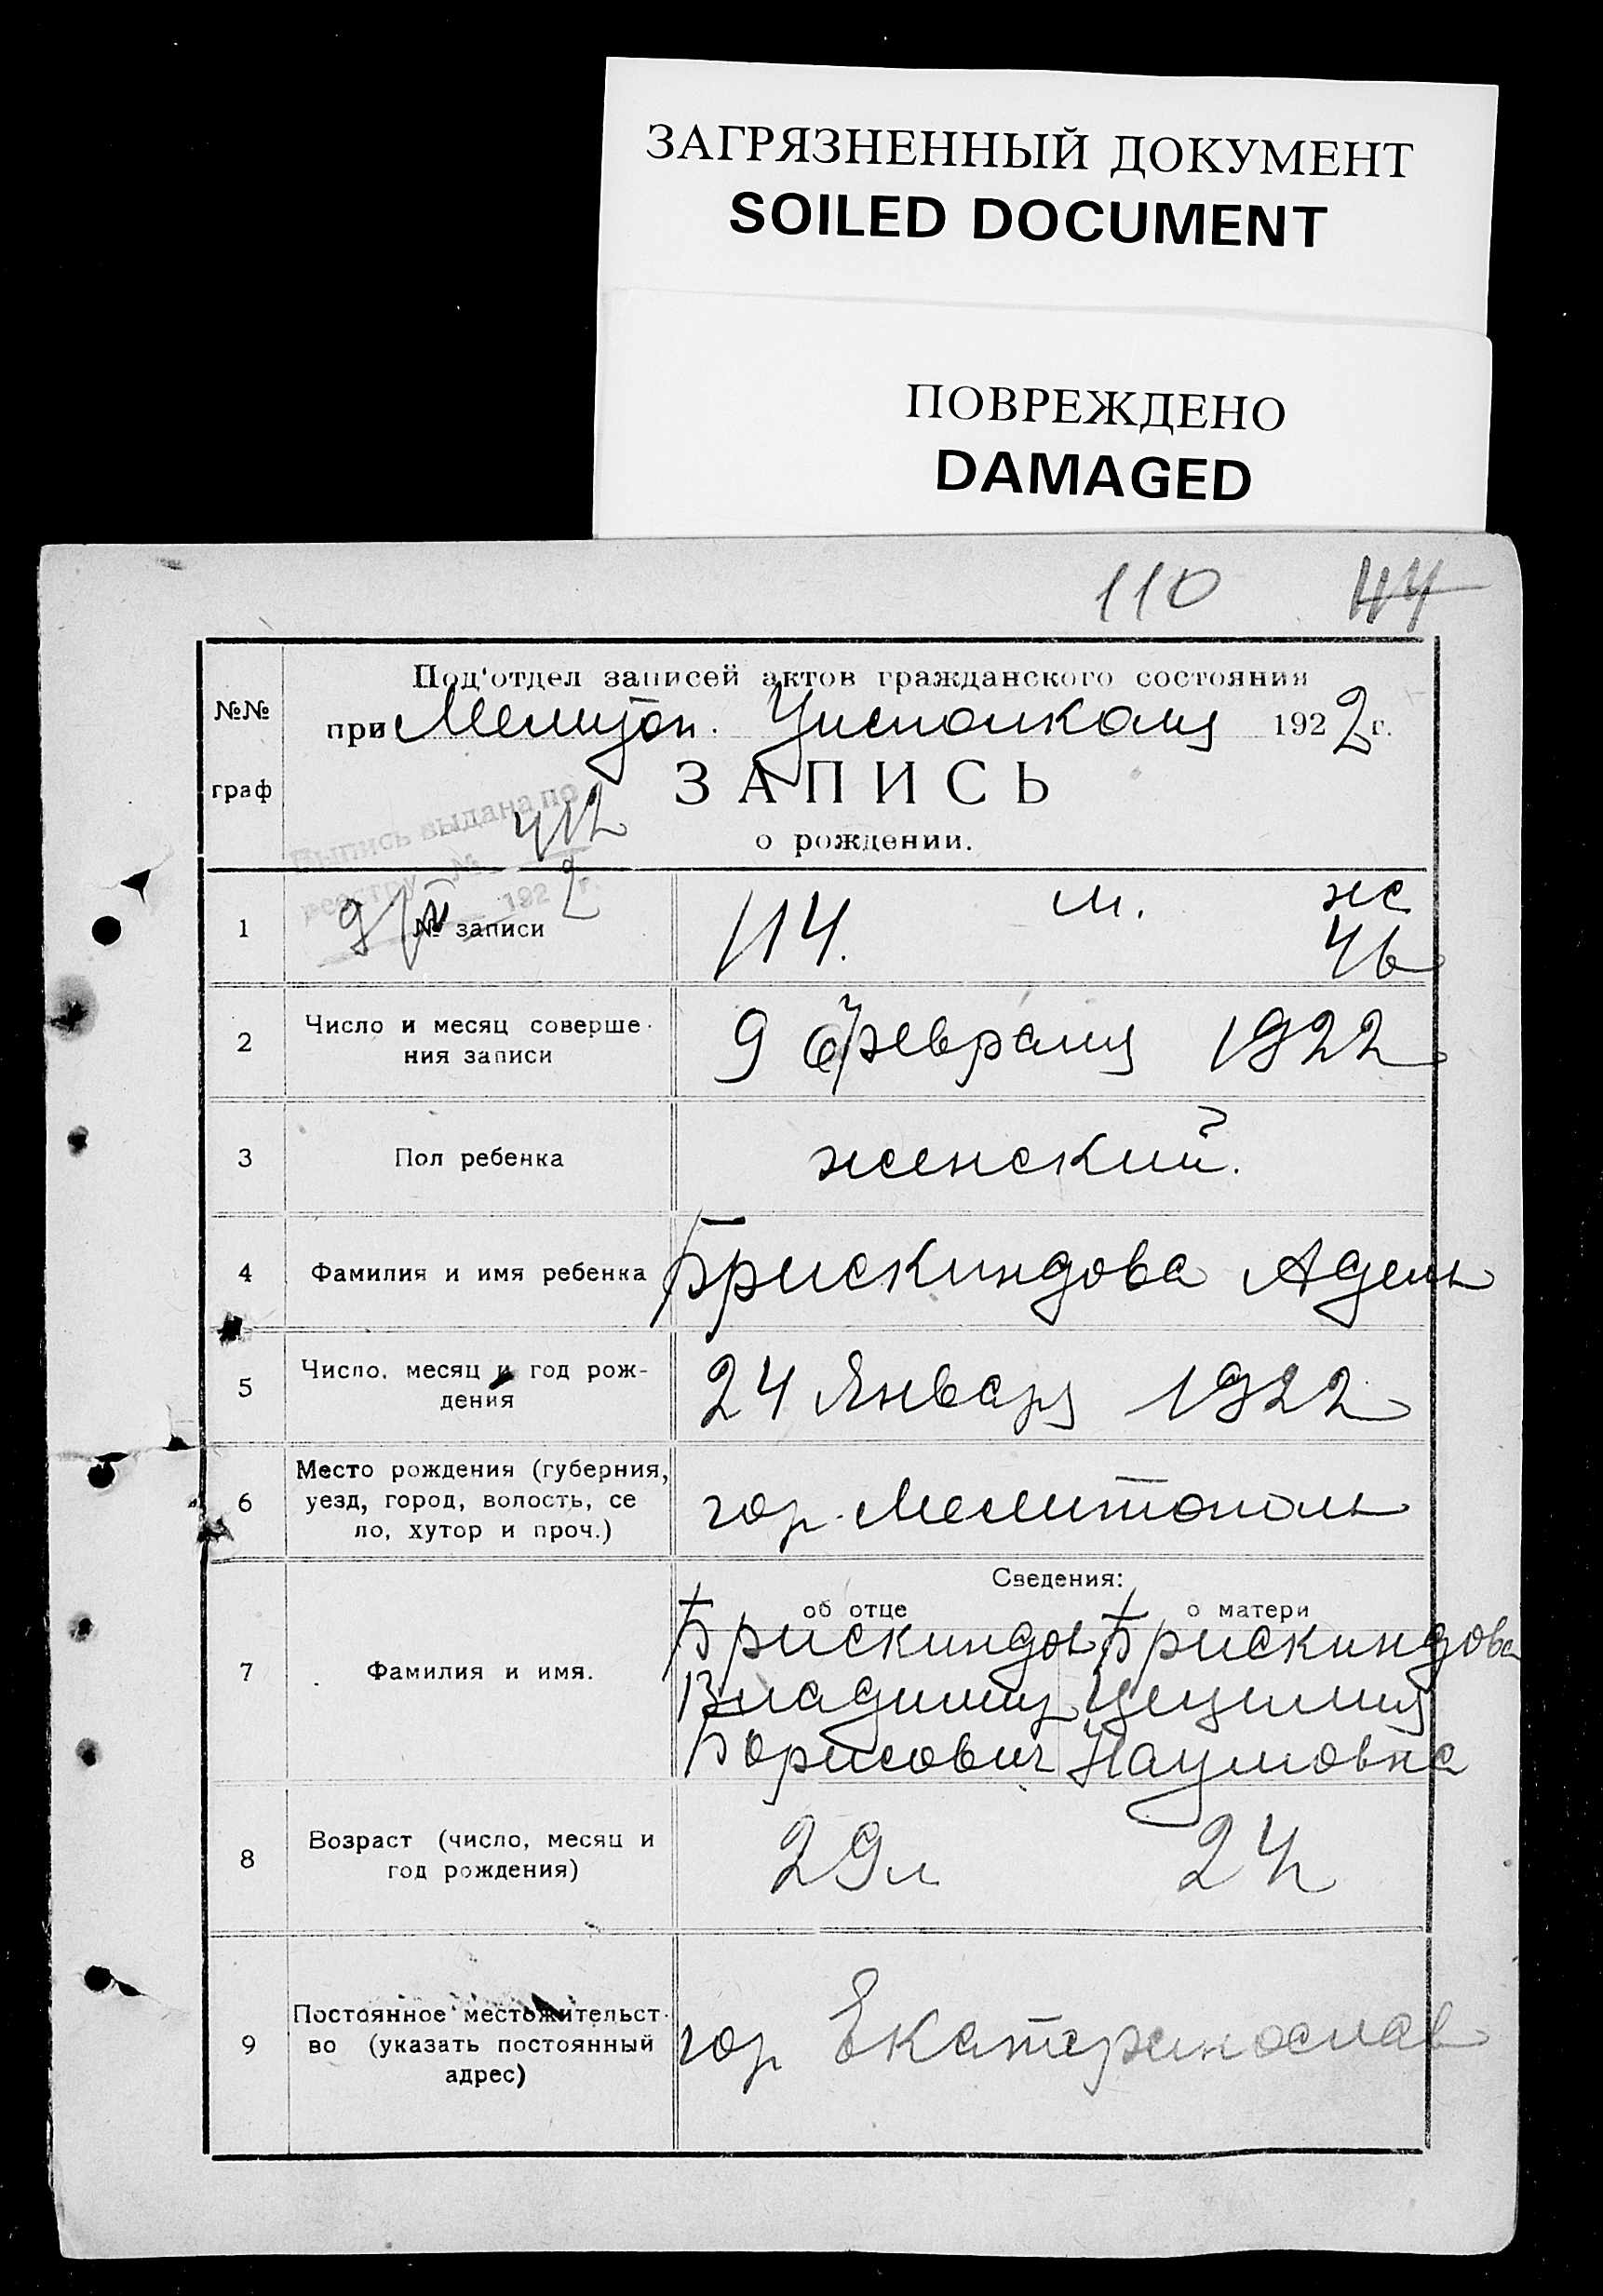 ЗАГРЯЗНЕННЫЙ ДОКУМЕНТ
SOILED DOCUMENT
ПОВРЕЖДЕНО
DAMAGED
110 44
№№ граф
Под'отдел записей актов гражданского состояния
при Мелитоп. Уисполкома 1922 г.
ЗАПИСЬ
о рождении.
Выпись выдана по
реестру № 412
9/II 1922 г.
1 № записи 114. м. ж 46
2 Число и месяц соверше-
ния записи 9 февраля 1922
3 Пол ребенка женский.
4 Фамилия и имя ребенка Брискиндова Адель
5 Число, месяц и год рож-
дения 24 Января 1922
6 Место рождения (губерния,
уезд, город, волость, се
ло, хутор и проч.) гор. Мелитополь
Сведения:
об отце о матери
7 Фамилия и имя. Брискиндов Брискиндова
Владимир Цецилия
Борисович Наумовна
8 Возраст (число, месяц и
год рождения) 29 л 24
9 Постоянное местожительст-
во (указать постоянный
адрес) гор Екатеринослав